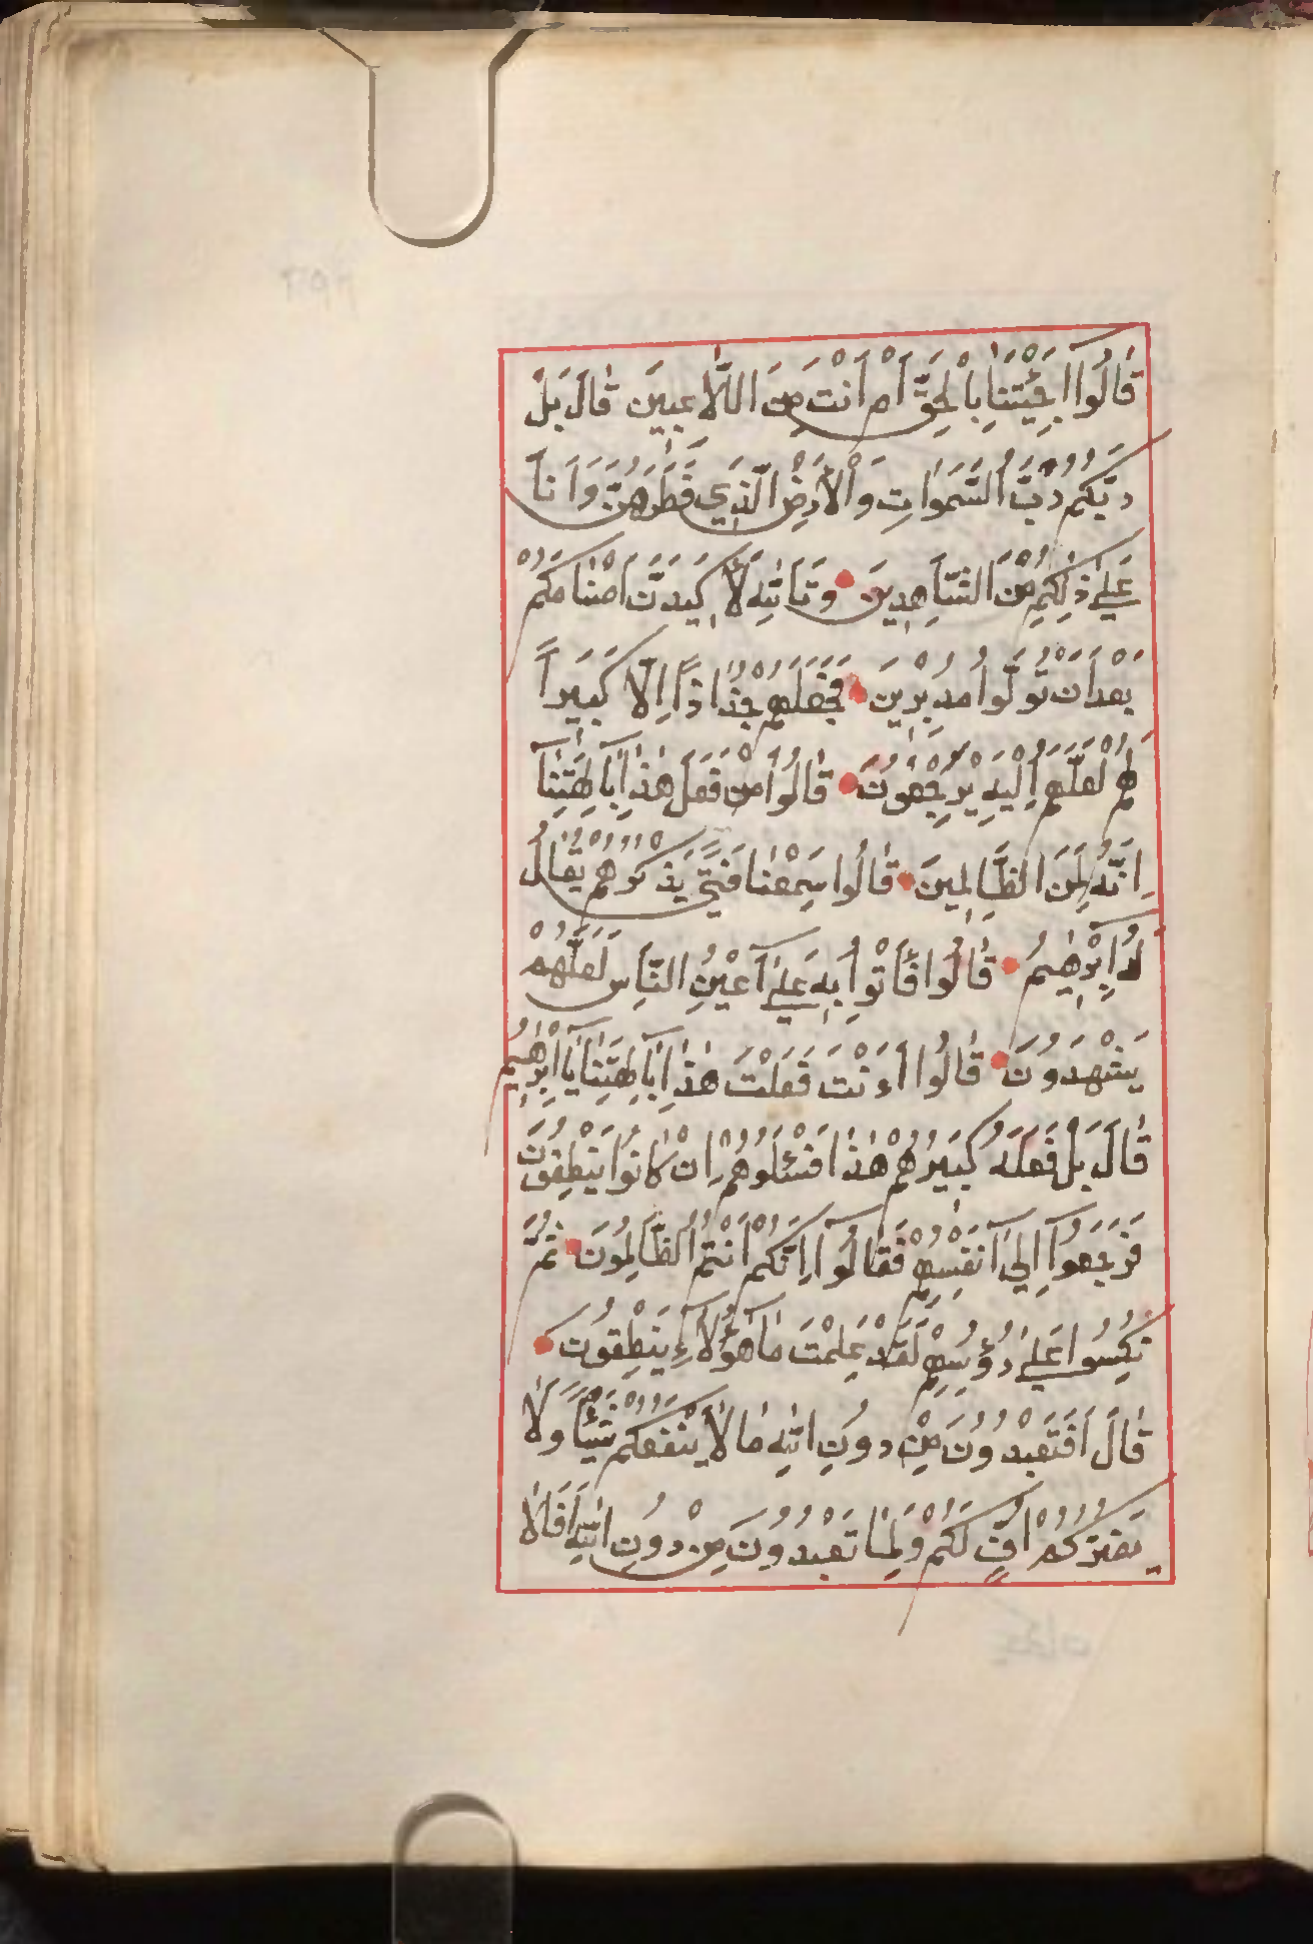 قَالُوا اَجِئْتَنَا بِالْحَقِّ اَمْ اَنْتَ مِنَ اللَّاعِبِينَ قَالَ بَلْ
رَبُّكُمْ رَبُّ السَّمَوَاتِ وَالْاَرْضِ الَّذِي فَطَرَهُنَّ وَاَنَا
عَلَى ذَلِكُمْ مِنَ الشَّاهِدِينَ وَتَاللَّهِ لَاَكِيدَنَّ اَصْنَامَكُمْ
بَعْدَ اَنْ تُوَلُّوا مُدْبِرِينَ فَجَعَلَهُمْ جُذَاذًا اِلَّا كَبِيرًا
لَهُمْ لَعَلَّهُمْ اِلَيْهِ يَرْجِعُونَ قَالُوا مَنْ فَعَلَ هَذَا بِآلِهَتِنَا
اِنَّهُ لَمِنَ الظَّالِمِينَ قَالُوا سَمِعْنَا فَتًى يَذْكُرُهُمْ يُقَالُ
لَهُ اِبْرَهِيمُ قَالُوا فَأْتُوا بِهِ عَلَى اَعْيُنِ النَّاسِ لَعَلَّهُمْ
يَشْهَدُونَ قَالُوا ءَاَنْتَ فَعَلْتَ هَذَا بِآلِهَتِنَا يَا اِبْرَهِيمُ
قَالَ بَلْ فَعَلَهُ كَبِيرُهُمْ هَذَا فَسْئَلُوهُمْ اِنْ كَانُوا يَنْطِقُونَ
فَرَجَعُوا اِلَى اَنْفُسِهِمْ فَقَالُوا اِنَّكُمْ اَنْتُمُ الظَّالِمُونَ ثُمَّ
نُكِسُوا عَلَى رُؤُسِهِمْ لَقَدْ عَلِمْتَ مَا هَؤُلَاءِ يَنْطِقُونَ
قَالَ اَفَتَعْبُدُونَ مِنْ دُونِ اللَّهِ مَا لَا يَنْفَعُكُمْ شَيْئًا وَلَا
يَضُرُّكُمْ اُفٍّ لَكُمْ وَلِمَا تَعْبُدُونَ مِنْ دُونِ اللَّهِ اَفَلَا